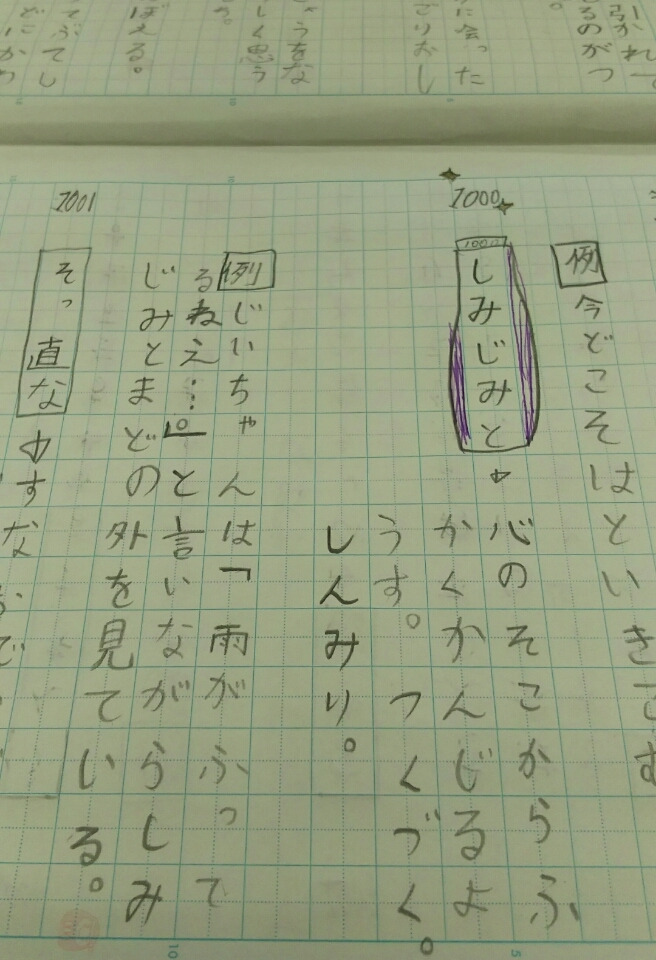 引かれて
るのがつ
に会った
ぼえる。
しく思う
例 今どこそはといきごむ
1000
1000
しみじみと
心のそこからふ
かくかんじるよ
うす。つくづく。
しんみり。
例 じいちゃんは「雨がふって
るねえ…」と言いながらしみ
じみとまどの外を見ている。
1001
そっ直な
すな
10
5